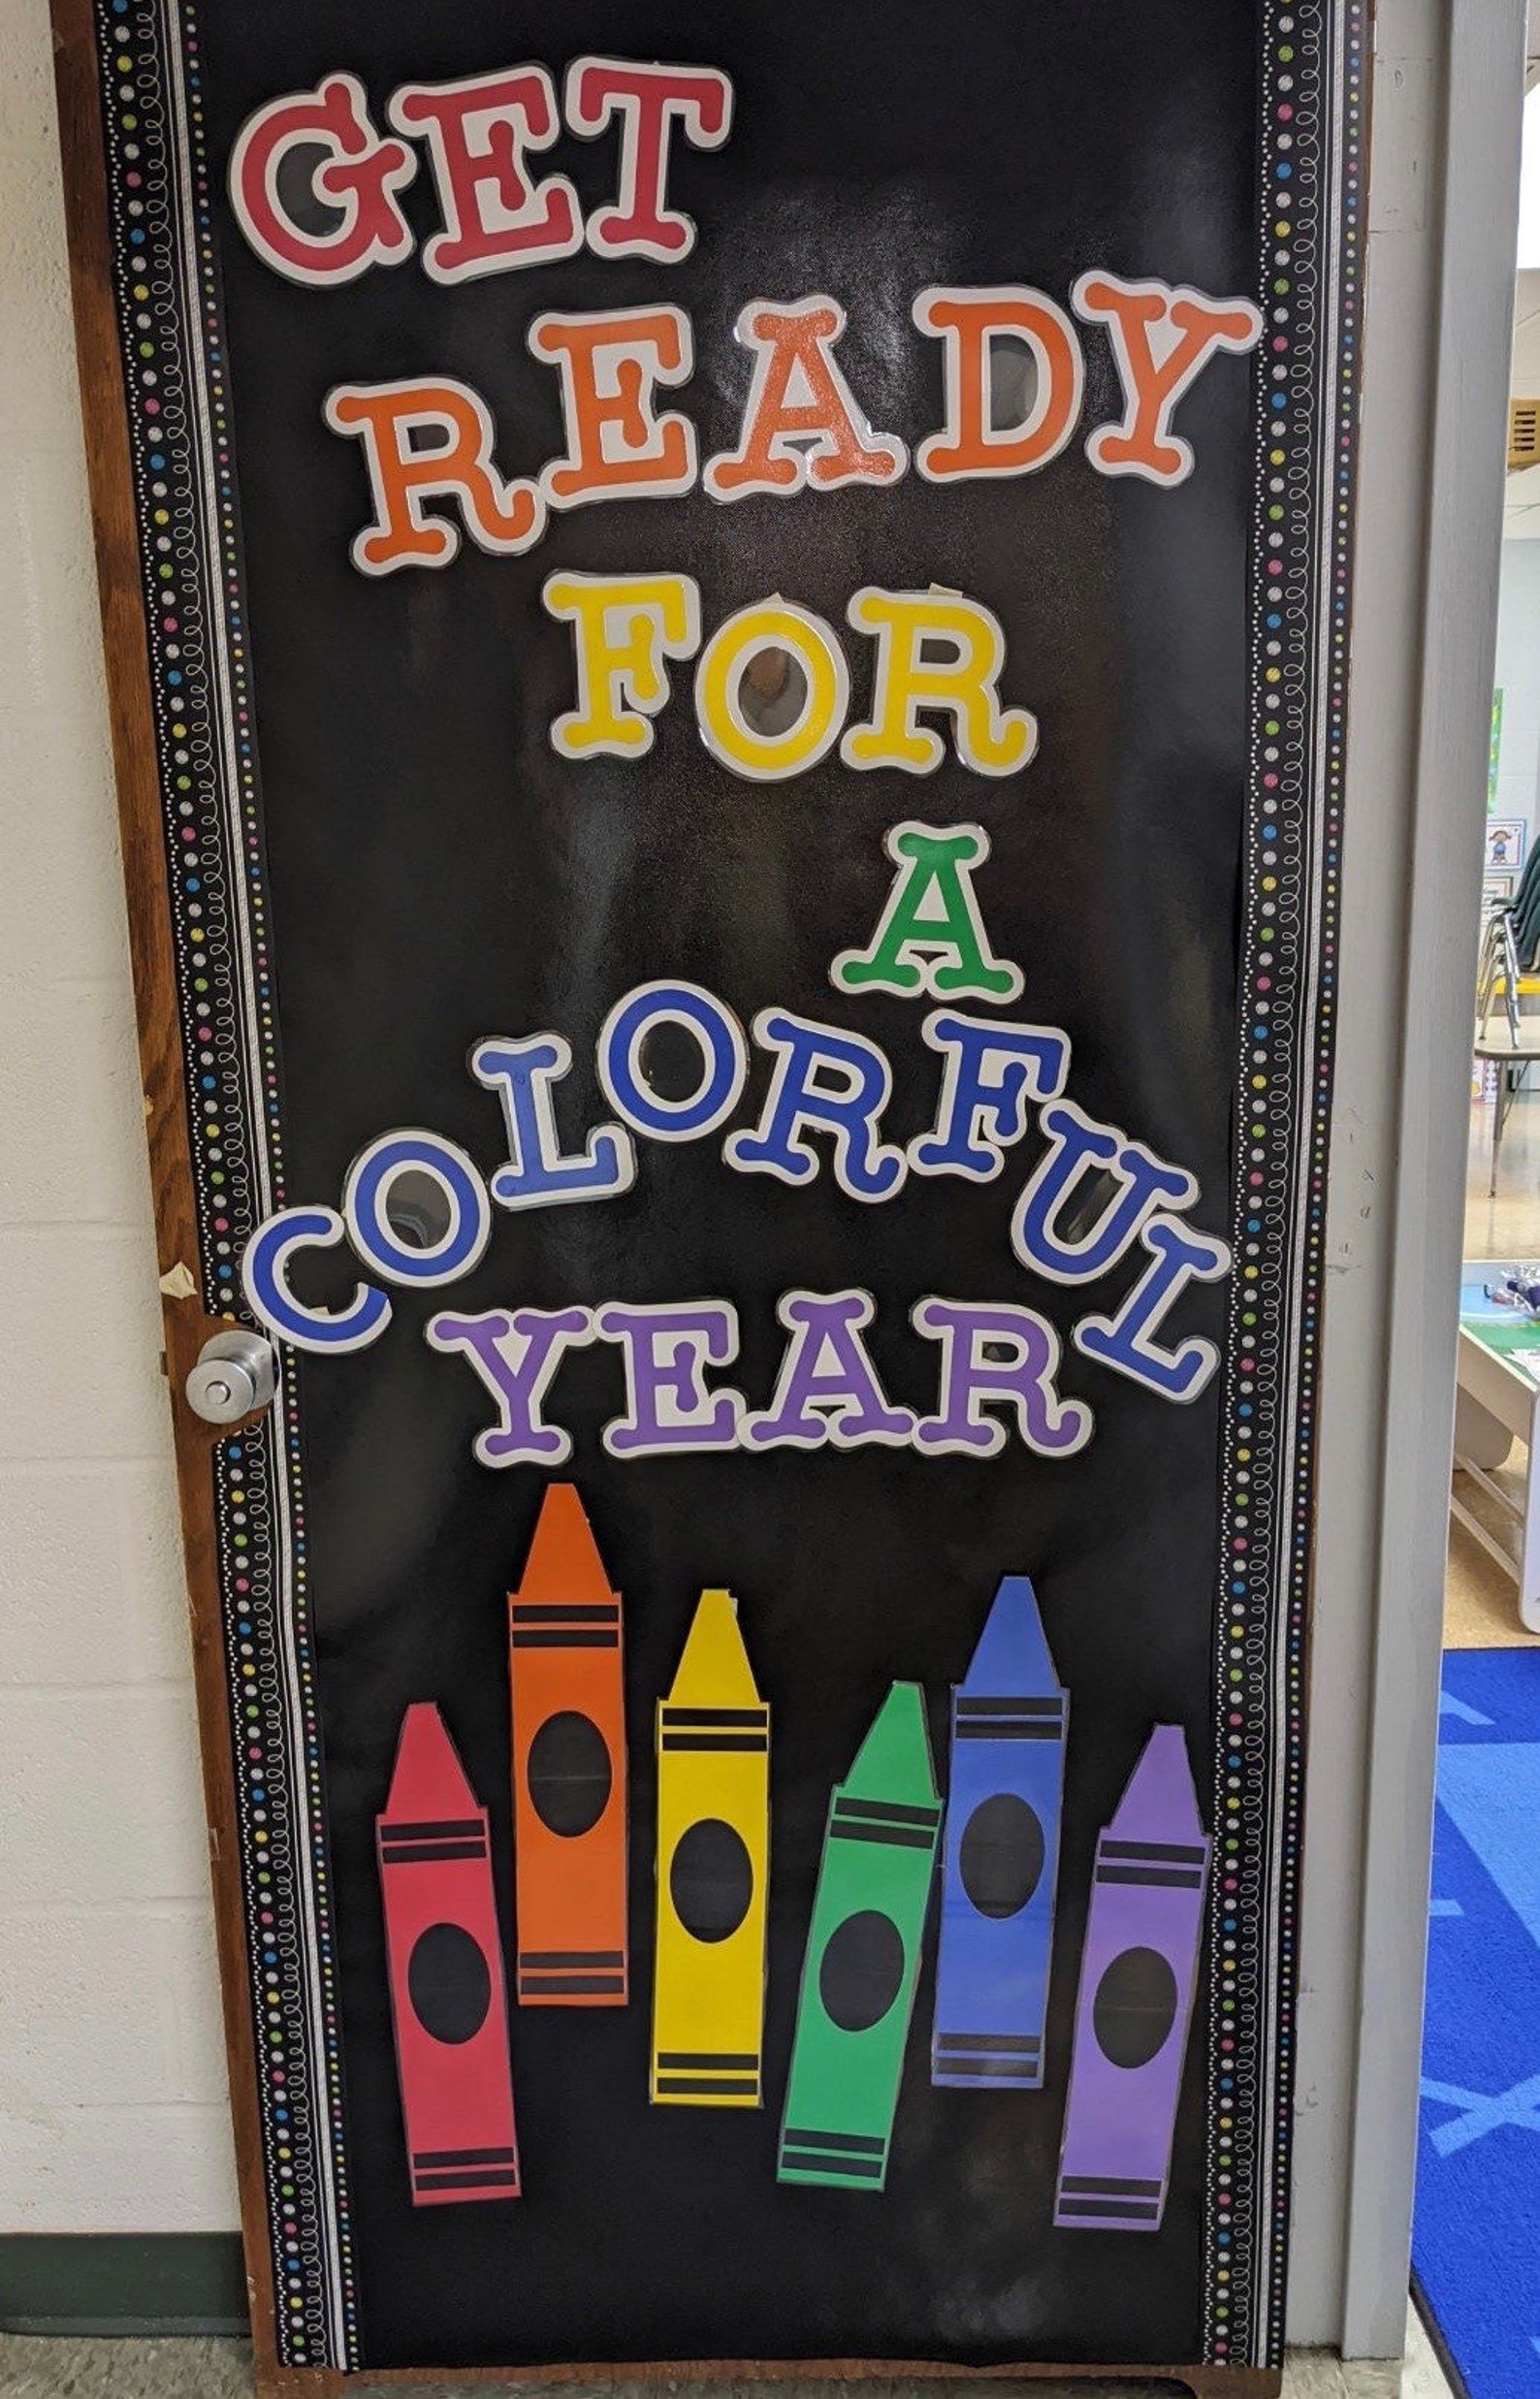 GET
READY
FOR
A
COLORFUL
YEAR